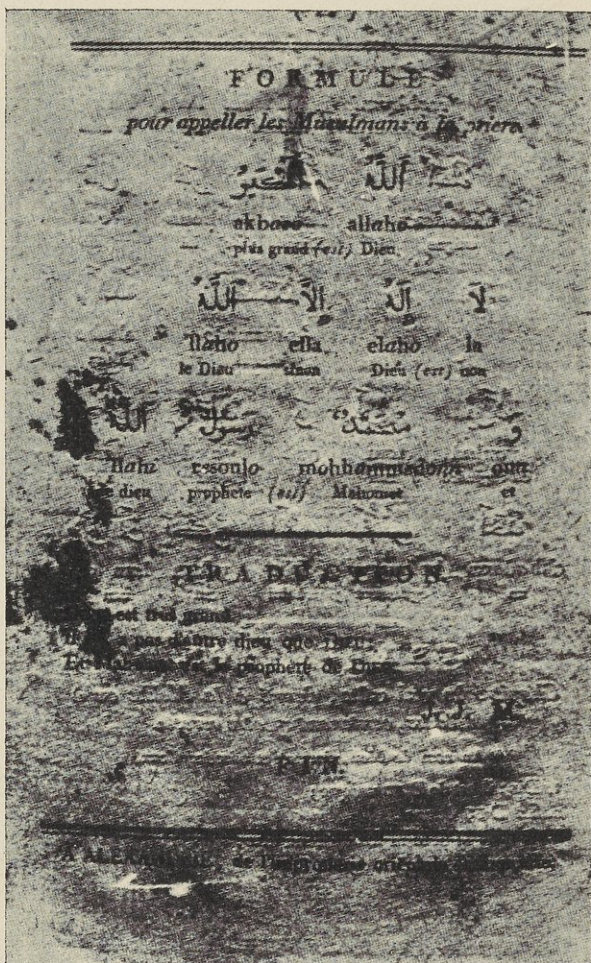 FORMULE
pour appeller les Musulmans à la priere.
اَللَّهُ اَكْبَرُ
akbaro allaho
plus grand (est) Dieu
لَا اِلَهُ اِلاَّ اَللَّهُ
llaho ella elaho la
le Dieu sinon Dieu (est) non
و مُحَمَّدٌ رَسُولُ اَللَّهِ
llahi rssoulo mohhammedonn ou
dieu prophete (est) Mahomet et
TRADUCTION.
est très grand
Il pas d'autre dieu que Dieu
Et Mahomet est le prophete de Dieu.
J. J. M.
FIN.
A ALEXANDRIE, de l'imprimerie orientale